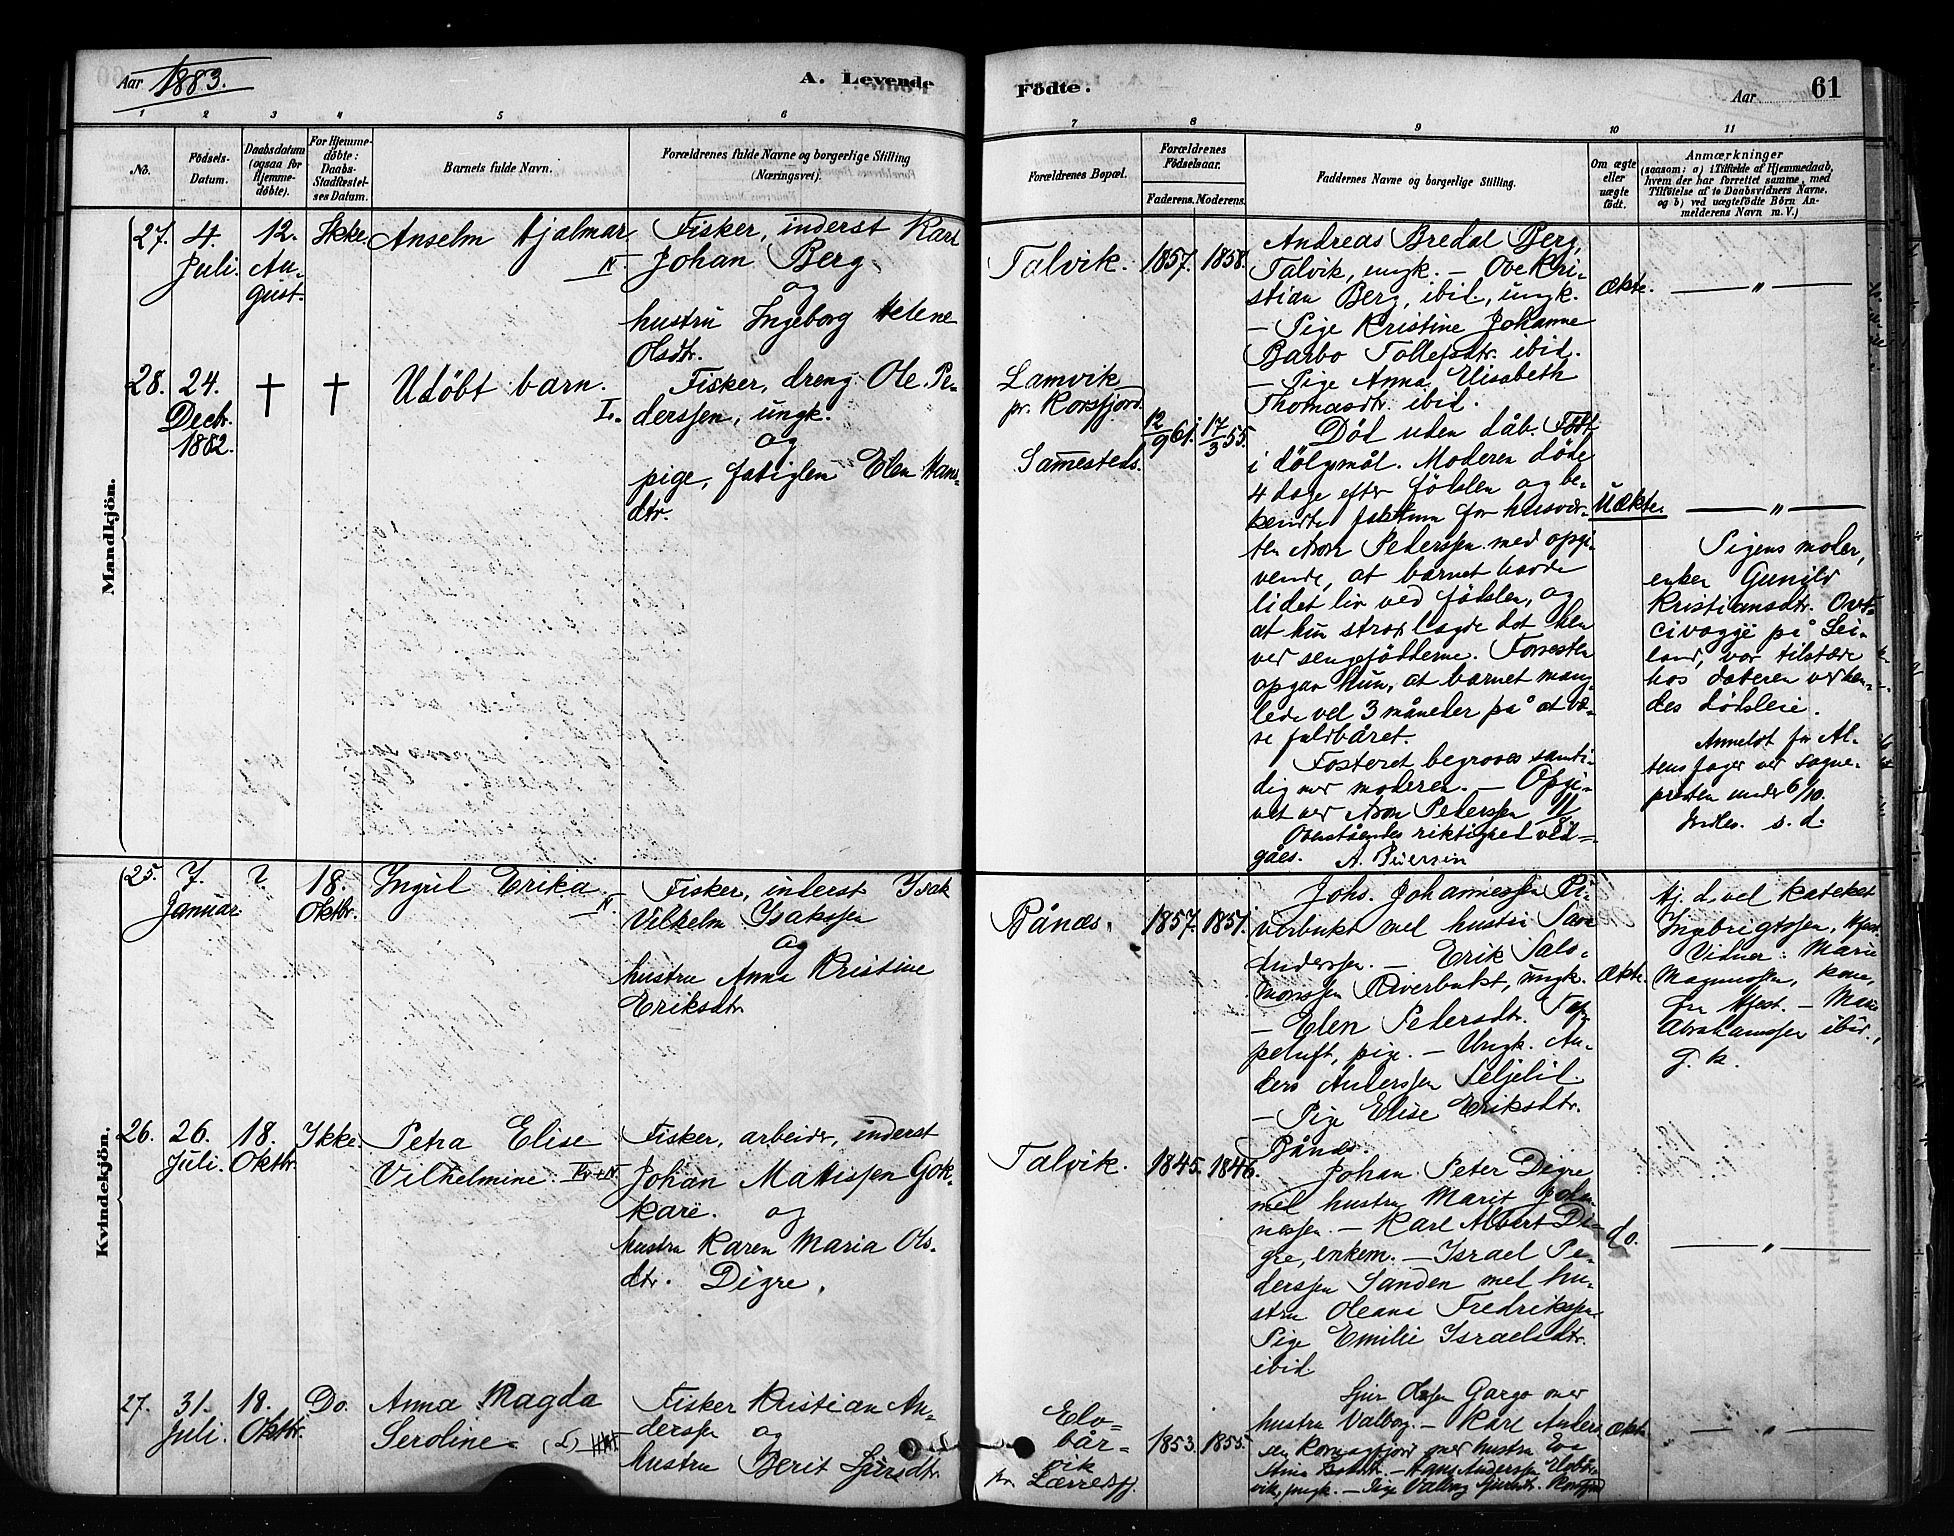 Aar 1883.
A. Levende
Födte.
Aar
61
1
2
3
4
5
6
7
8
9
10
11
No.
Födsels-
Datum.
Daabsdatum
(ogsaa for
Hjemme-
döbte).
For Hjemme-
döbte:
Daabs-
Stadfæstel-
ses Datum.
Barnets fulde Navn.
Forældrenes fulde Navne og borgerlige Stilling
(Næringsvei).
Forældrenes Bopæl.
Forældrenes
Födselsaar.
Faderens.
Moderens.
Faddernes Navne og borgerlige Stilling.
Om ægte
eller
uægte
födt.
Anmærkninger
(saasom: a) i Tilfælde af Hjemmedaab,
hvem der har forrettet samme, med
Tilföielse af to Daabsvidners Navne.
og b) ved uægtefödte Börn An-
melderens Navn m. V.)
Mandkjön.
27.
4.
Juli.
12.
Au-
gust.
Ikke
Anselm Hjalmar.
N.
Fisker, inderst Karl
Johan Berg.
og
hustru Ingeborg Helene
Olsdtr.
Talvik.
1857.
1858.
Andreas Bredal Berg,
Talvik, ungk. — Ove Kri-
stian Berg, ibid, ungk.
— Pige Kristine Johanne
Barbo Tollefsdtr. ibid.
— Pige Anna Elisabeth
Thomasdtr. ibid.
Ækte.
— " —
28.
24.
Decbr.
1882.
†
†
Udöbt barn.
L.
Fisker, dreng Ole Pe-
derssen, ungk.
og
pige, fatiglem Elen Hans-
dtr.
Lamvik
pr. Korsfjord.
Sammesteds.
12/9 61.
17/3 55.
Död uden dåb. Födt
i dölgsmål. Moderen döde
4 dage efter födslen og be-
kendte faktum for husver-
ten Aron Pederssen med opgi-
vende, at barnet havde
lidet liv ved födslen, og
at hun strax lagde det hen
ved sengefödderne. Forresten
opgav hun, at barnet mang-
lede vel 3 måneder på at væ-
se fuldbåret.
Fosteret begroves samti-
dig med moderen. — Opgi-
vet ved Aron Pederssen
Ovenståendes riktighed ved-
gåes. A. Pedersen
Uækte.
— " —
Pigens moder,
enken Gunild
Kristiansdtr. Ovt-
civagge på Sei-
land, var tilstæde
hos dateren ved hen-
des dödsleie.
Anmeldt for Al-
tens foged ved sogne-
presten under 6/10.
s. d.
Kvindekjön.
25.
7.
Januar.
?
18.
Oktbr.
Ingril Erika.
N.
Fisker, inderst Isak
Vilhelm Isakssen
og
hustru Anna Kristine
Eriksdtr.
Rånæs.
1857.
1851.
Johs. Johannessen Ri-
verbukt med hustru Sara
Anderssen. — Erik Salo-
monssen Riverbukt, ungk.
— Elen Pedersdtr. Tap-
peluft, pige. — Ungk. An-
ders Anderssen Seljelid.
— Pige Elise Eriksdtr.
Rånæs.
Ækte.
Hj. d. ved kateket
Ingebrigtssen, Hfest.
Vidner: Marie
Magnussen, kone,
fra Hfest. — Marie
Abrahamssen ibid.,
g. k.
26.
26.
Juli.
18.
Oktbr.
Ikke
Petra Elise
Vilhelmine.
Kv+N.
Fisker, arbeider, inderst
Johan Mattissen Gok-
kare. og
hustru Karen Maria Ols-
dtr. Digre.
Talvik.
1845.
1846.
Johan Peter Digre
med hustru Marit Joha-
nessen. — Karl Albert Di-
gre, enkem. — Israel Pe-
derssen Sanden med hu-
stru Oleana Fredrikssen
Pige Emilie Israelsdtr.
ibid.
do.
— " —
27.
31.
Juli.
18.
Oktbr.
Do.
Anna Magda
Seroline.
(L)
Fisker Kristian An-
derssen
og
hustru Berit Sjursdtr.
Elve-
bår-
vik
pr. Lærresfj.
1853.
1855.
Sjur Olssen Gargo med
hustru Valborg. — Karl Anders-
sen med hustru Eva
Stina — Hans Anderssen
vik, ungk. — Pige Valborg Sjursdtr.
Ækte
— " —